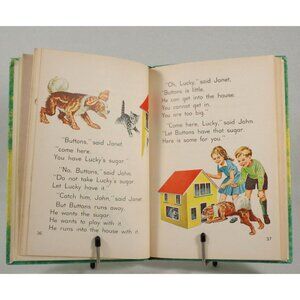 "Buttons," said Janet,
"come here.
You have Lucky's sugar."
"No, Buttons," said John.
"Do not take Lucky's sugar.
Let Lucky have it."
"Catch him, John," said Janet.
But Buttons runs away.
He wants the sugar.
He wants to play with it.
He runs into the house with it.
36
"Oh, Lucky," said Janet,
"Buttons is little.
He can get into the house.
You cannot get in.
You are too big."
"Come here, Lucky," said John.
"Let Buttons have that sugar.
Here is some for you."
37